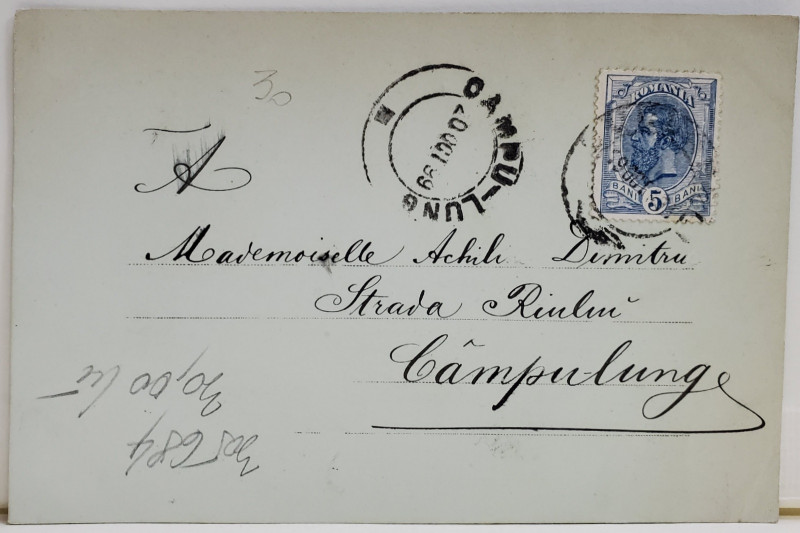 30
CAMPU-LUNG
ROMANIA
BANI 5 BANI
A
Mademoiselle Achile Dimitru
Strada Rîului
Câmpulung
30,00 lei
305684